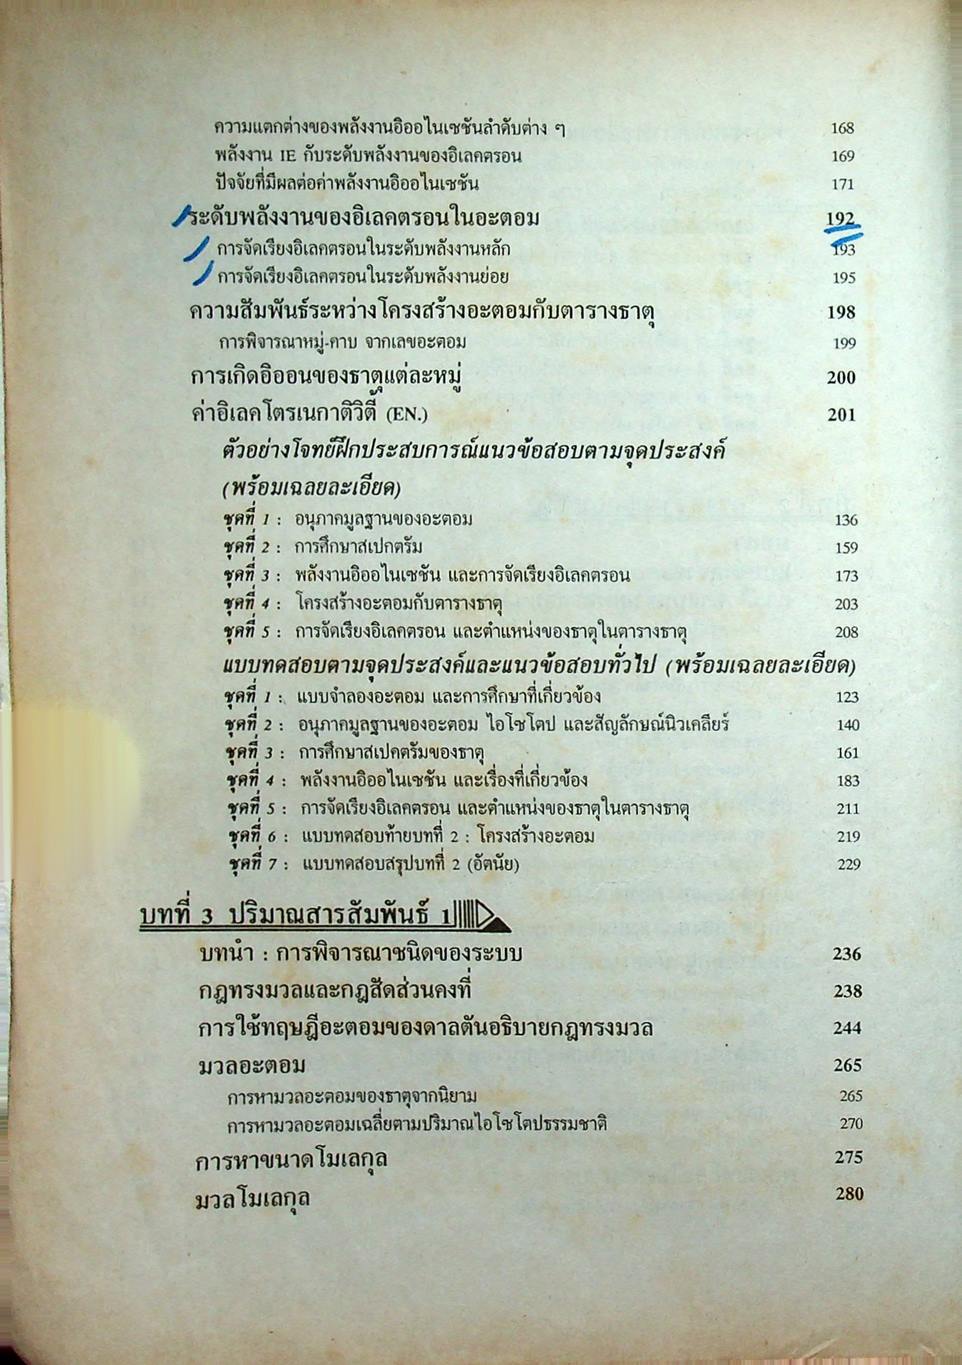 ความแตกต่างของพลังงานอิออไนเซชันลำดับต่าง ๆ 168
พลังงาน IE กับระดับพลังงานของอิเลคตรอน 169
ปัจจัยที่มีผลต่อค่าพลังงานอิออไนเซชัน 171
ระดับพลังงานของอิเลคตรอนในอะตอม 192
การจัดเรียงอิเลคตรอนในระดับพลังงานหลัก 193
การจัดเรียงอิเลคตรอนในระดับพลังงานย่อย 195
ความสัมพันธ์ระหว่างโครงสร้างอะตอมกับตารางธาตุ 198
การพิจารณาหมู่-คาบ จากเลขอะตอม 199
การเกิดอิออนของธาตุแต่ละหมู่ 200
ค่าอิเลคโตรเนกาติวิตี้ (EN.) 201
ตัวอย่างโจทย์ฝึกประสบการณ์แนวข้อสอบตามจุดประสงค์
(พร้อมเฉลยละเอียด)
ชุดที่ 1 : อนุภาคมูลฐานของอะตอม 136
ชุดที่ 2 : การศึกษาสเปกตรัม 159
ชุดที่ 3 : พลังงานอิออไนเซชัน และการจัดเรียงอิเลคตรอน 173
ชุดที่ 4 : โครงสร้างอะตอมกับตารางธาตุ 203
ชุดที่ 5 : การจัดเรียงอิเลคตรอน และตำแหน่งของธาตุในตารางธาตุ 208
แบบทดสอบตามจุดประสงค์และแนวข้อสอบทั่วไป (พร้อมเฉลยละเอียด)
ชุดที่ 1 : แบบจำลองอะตอม และการศึกษาที่เกี่ยวข้อง 123
ชุดที่ 2 : อนุภาคมูลฐานของอะตอม ไอโซโตป และสัญลักษณ์นิวเคลียร์ 140
ชุดที่ 3 : การศึกษาสเปคตรัมของธาตุ 161
ชุดที่ 4 : พลังงานอิออไนเซชัน และเรื่องที่เกี่ยวข้อง 183
ชุดที่ 5 : การจัดเรียงอิเลคตรอน และตำแหน่งของธาตุในตารางธาตุ 211
ชุดที่ 6 : แบบทดสอบท้ายบทที่ 2 : โครงสร้างอะตอม 219
ชุดที่ 7 : แบบทดสอบสรุปบทที่ 2 (อัตนัย) 229
บทที่ 3 ปริมาณสารสัมพันธ์ 1
บทนำ : การพิจารณาชนิดของระบบ 236
กฎทรงมวลและกฎสัดส่วนคงที่ 238
การใช้ทฤษฎีอะตอมของดาลตันอธิบายกฎทรงมวล 244
มวลอะตอม 265
การหามวลอะตอมของธาตุจากนิยาม 265
การหามวลอะตอมเฉลี่ยตามปริมาณไอโซโตปธรรมชาติ 270
การหาขนาดโมเลกุล 275
มวลโมเลกุล 280